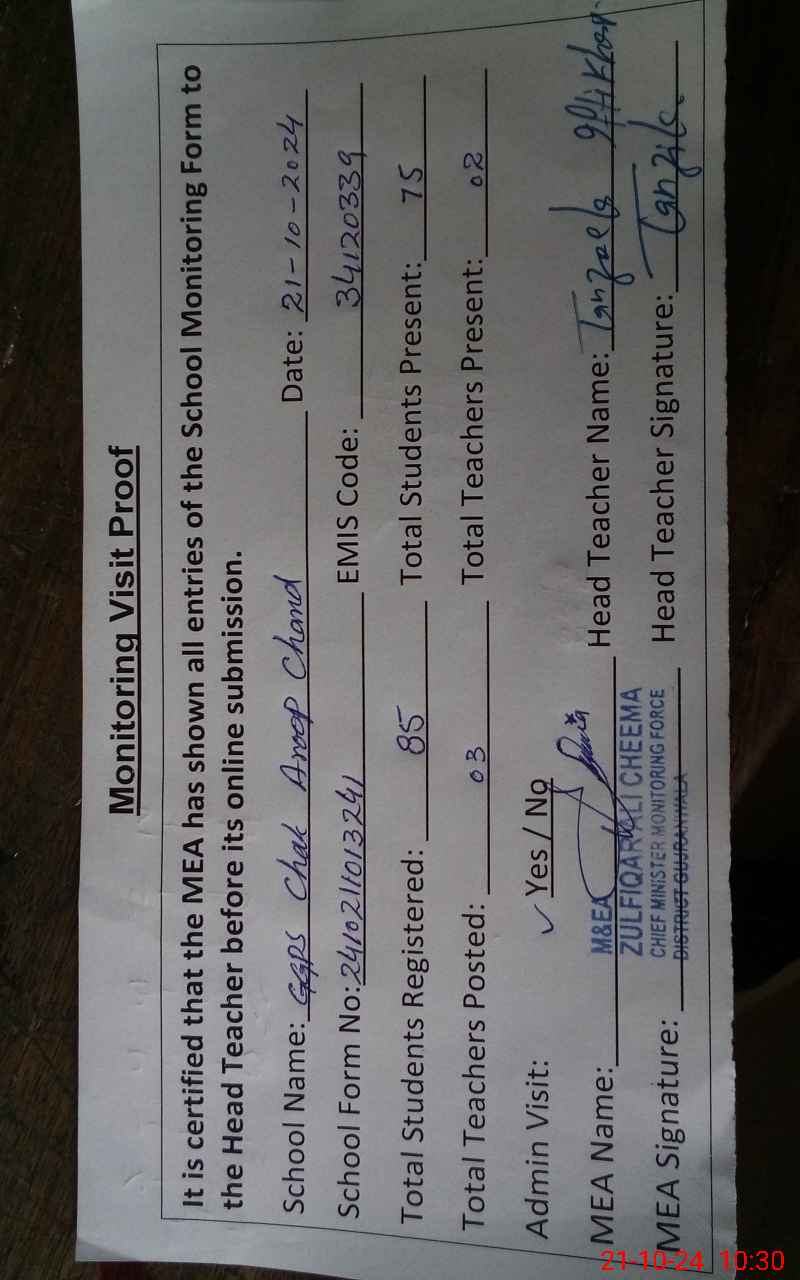 Monitoring Visit Proof
It is certified that the MEA has shown all entries of the School Monitoring Form to
the Head Teacher before its online submission.
School Name: GGPS Chak Aroop Chand Date: 21-10-2024
School Form No: 2410211013241 EMIS Code: 34120339
Total Students Registered: 85 Total Students Present: 75
Total Teachers Posted: 03 Total Teachers Present: 02
Admin Visit: ✓ Yes / No
MEA Name: M&EA Head Teacher Name: Tanzeela Iftikhar
ZULFIQAR ALI CHEEMA
CHIEF MINISTER MONITORING FORCE
MEA Signature: DISTRICT GUJRANWALA Head Teacher Signature: Tanzila
21-10-24 10:30